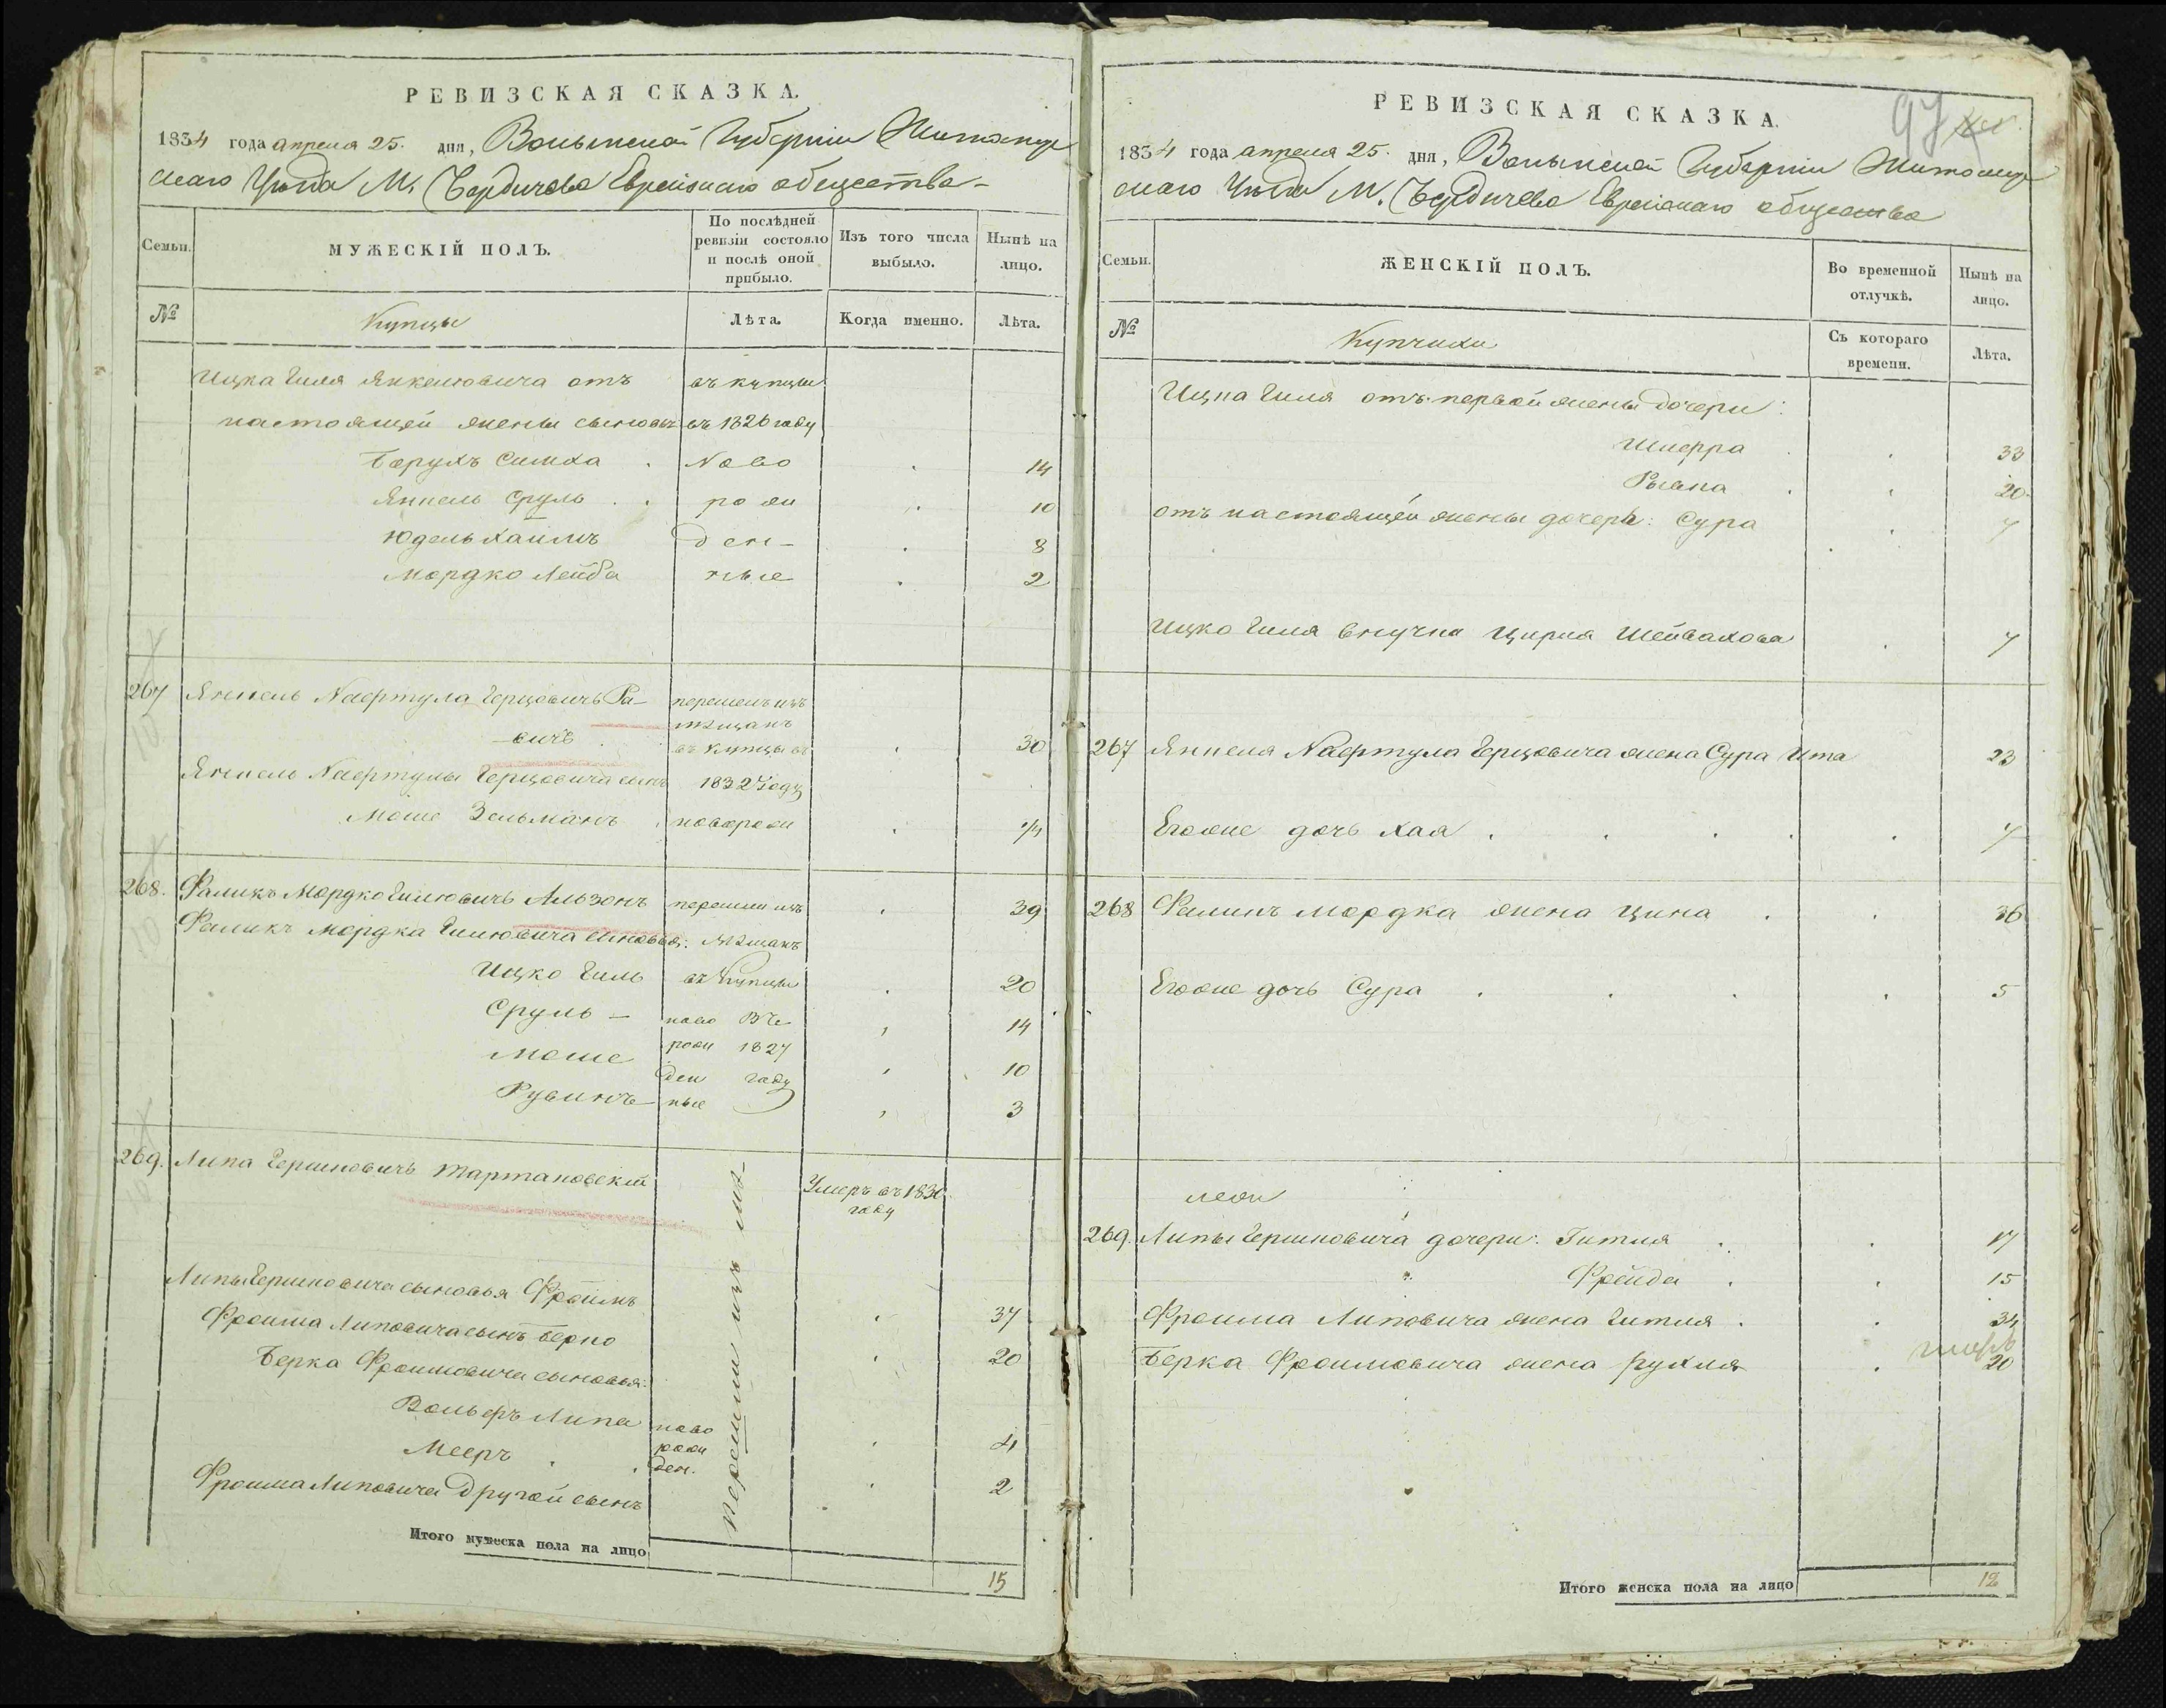 РЕВИЗСКАЯ СКАЗКА.
1834 года апреля 25. дня, Волынской Губерніи Житомир
скаго Уезда М. Бердичева Еврейскаго общества
Семьи.
МУЖЕСКІЙ ПОЛЪ.
По послѣдней ревизіи состояло и послѣ оной прибыло.
Изъ того числа выбыло.
Нынѣ на лицо.
№
Купцы
Лѣта.
Когда именно.
Лѣта.
Ицка Гиля Янкелювича отъ въ купцы
настоящей жены сыновья въ 1826 году
Борухъ Симха ново 14
Янкель Сруль рож 10
Юдель Хаимъ ден 8
Мордко Лейба ные 2
267 Янкель Нафтула Герцовичъ Ра- перешелъ изъ
вичъ мѣщанъ въ купцы въ 30
Янкель Нафтулы Герцовича сынъ 1832 году
Моше Зельманъ новорож 1/4
268. Фаликъ Мордко Гилювичъ Альзонъ перешли изъ 39
Фаликъ Мордка Гилювича сыновья: мѣщанъ
Ицко Гиль въ купцы 20
Сруль ново въ 14
Моше рож 1827 10
ден году
Рувинъ ные 3
269. Липа Гершковичъ Тартаковскій Умеръ въ 1830
году
Перешли изъ мѣ-
Липы Гершковича сыновья Фроимъ 37
Фроима Липовича сынъ Берко 20
Берка Фроимовича сыновья:
Вольфъ Липа ново 4
Мееръ рож 2
ден.
Фроима Липовича другой сынъ
Итого мужеска пола на лицо 15
97
РЕВИЗСКАЯ СКАЗКА.
1834 года апреля 25. дня, Волынской Губерніи Житомир
скаго Уезда М. Бердичева Еврейскаго общества
Семьи.
ЖЕНСКІЙ ПОЛЪ.
Во временной отлучкѣ.
Нынѣ на лицо.
№
Купчихи
Съ котораго времени.
Лѣта.
Ицка Гиля отъ первой жены дочери:
Шифра 33
20
отъ настоящей жены дочерь: Сура 7
Ицко Гиля внучка Цирля 7
267 Янкеля Нафтула Герцовича жена Сура Ита 23
Егоже дочь Хая 7
268 Фаликъ Мордка жена Цина 36
Егоже дочь Сура 5
269. Липы Гершковича дочери: Гитля 17
Фрейда 15
Фроима Липовича жена Гитля 34
Берка Фроимовича жена Рухля 20
Итого женска пола на лицо 12